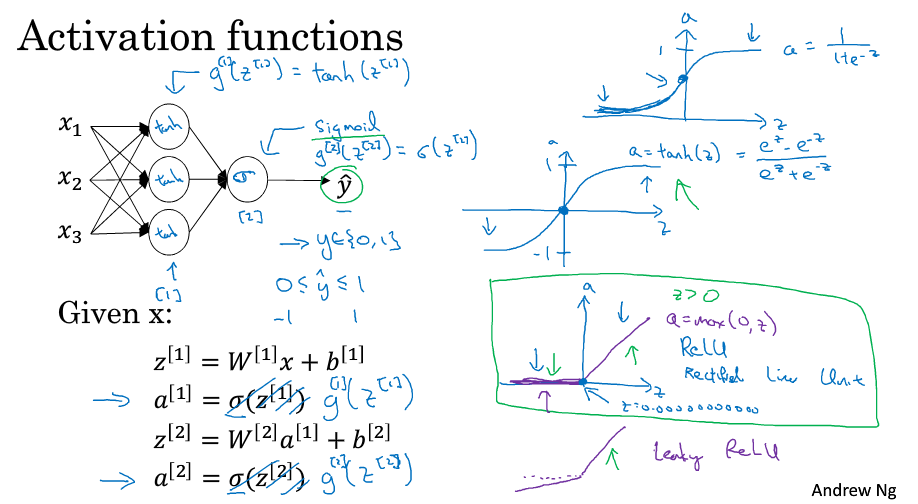 Activation functions
g^[1](z^[1]) = tanh(z^[1])
x₁
x₂
x₃
tanh
tanh
tanh
σ
[1]
[2]
sigmoid
g^[2](z^[2]) = σ(z^[2])
ŷ
→ y∈{0,1}
0 ≤ ŷ ≤ 1
-1 1
Given x:
z^[1] = W^[1]x + b^[1]
→ a^[1] = σ(z^[1]) g^[1](z^[1])
z^[2] = W^[2]a^[1] + b^[2]
→ a^[2] = σ(z^[2]) g^[2](z^[2])
a
1
z
a = 1/(1+e^-z)
a
1
-1
z
a = tanh(z) = (e^z - e^-z)/(e^z + e^-z)
a
z
z>0
a = max(0,z)
ReLU
Rectified Linear Unit
z=0.00000000000
Leaky ReLU
Andrew Ng